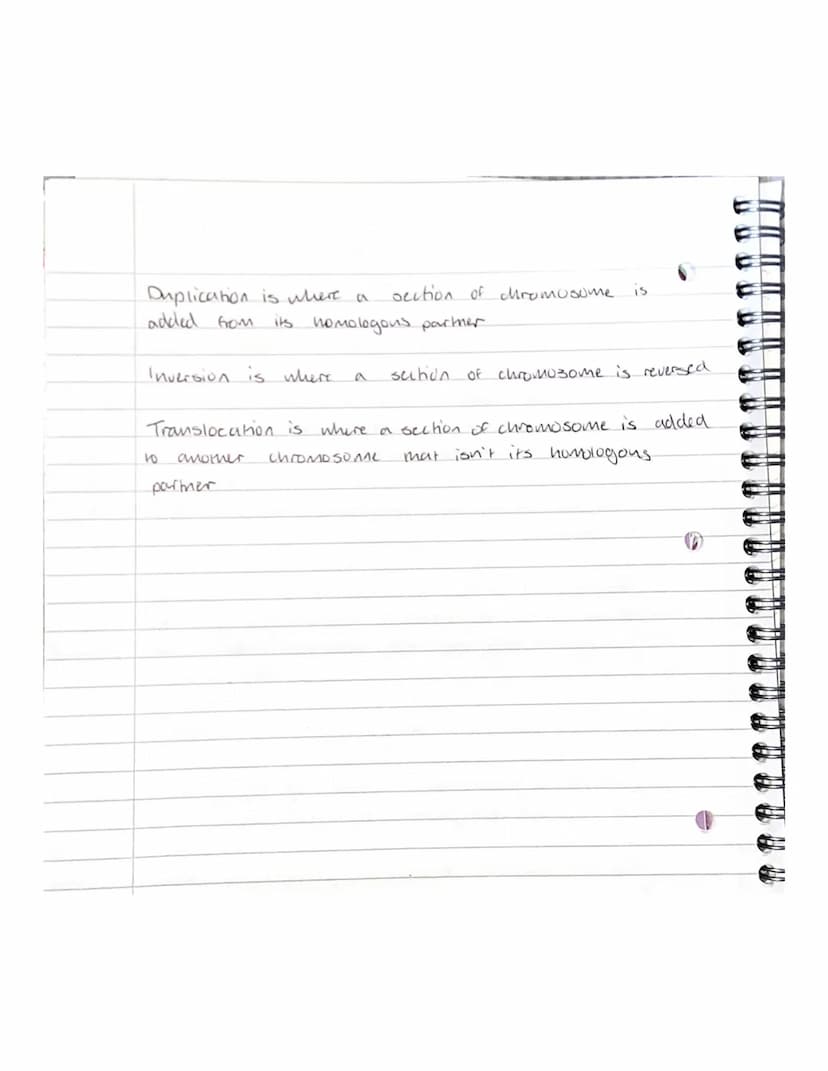 Duplication is where a section of chromosome is
added from its homologous partner
Inversion is where a section of chromosome is reversed
Translocation is where a section of chromosome is added
to another chromosome that isn't its homologous
partner